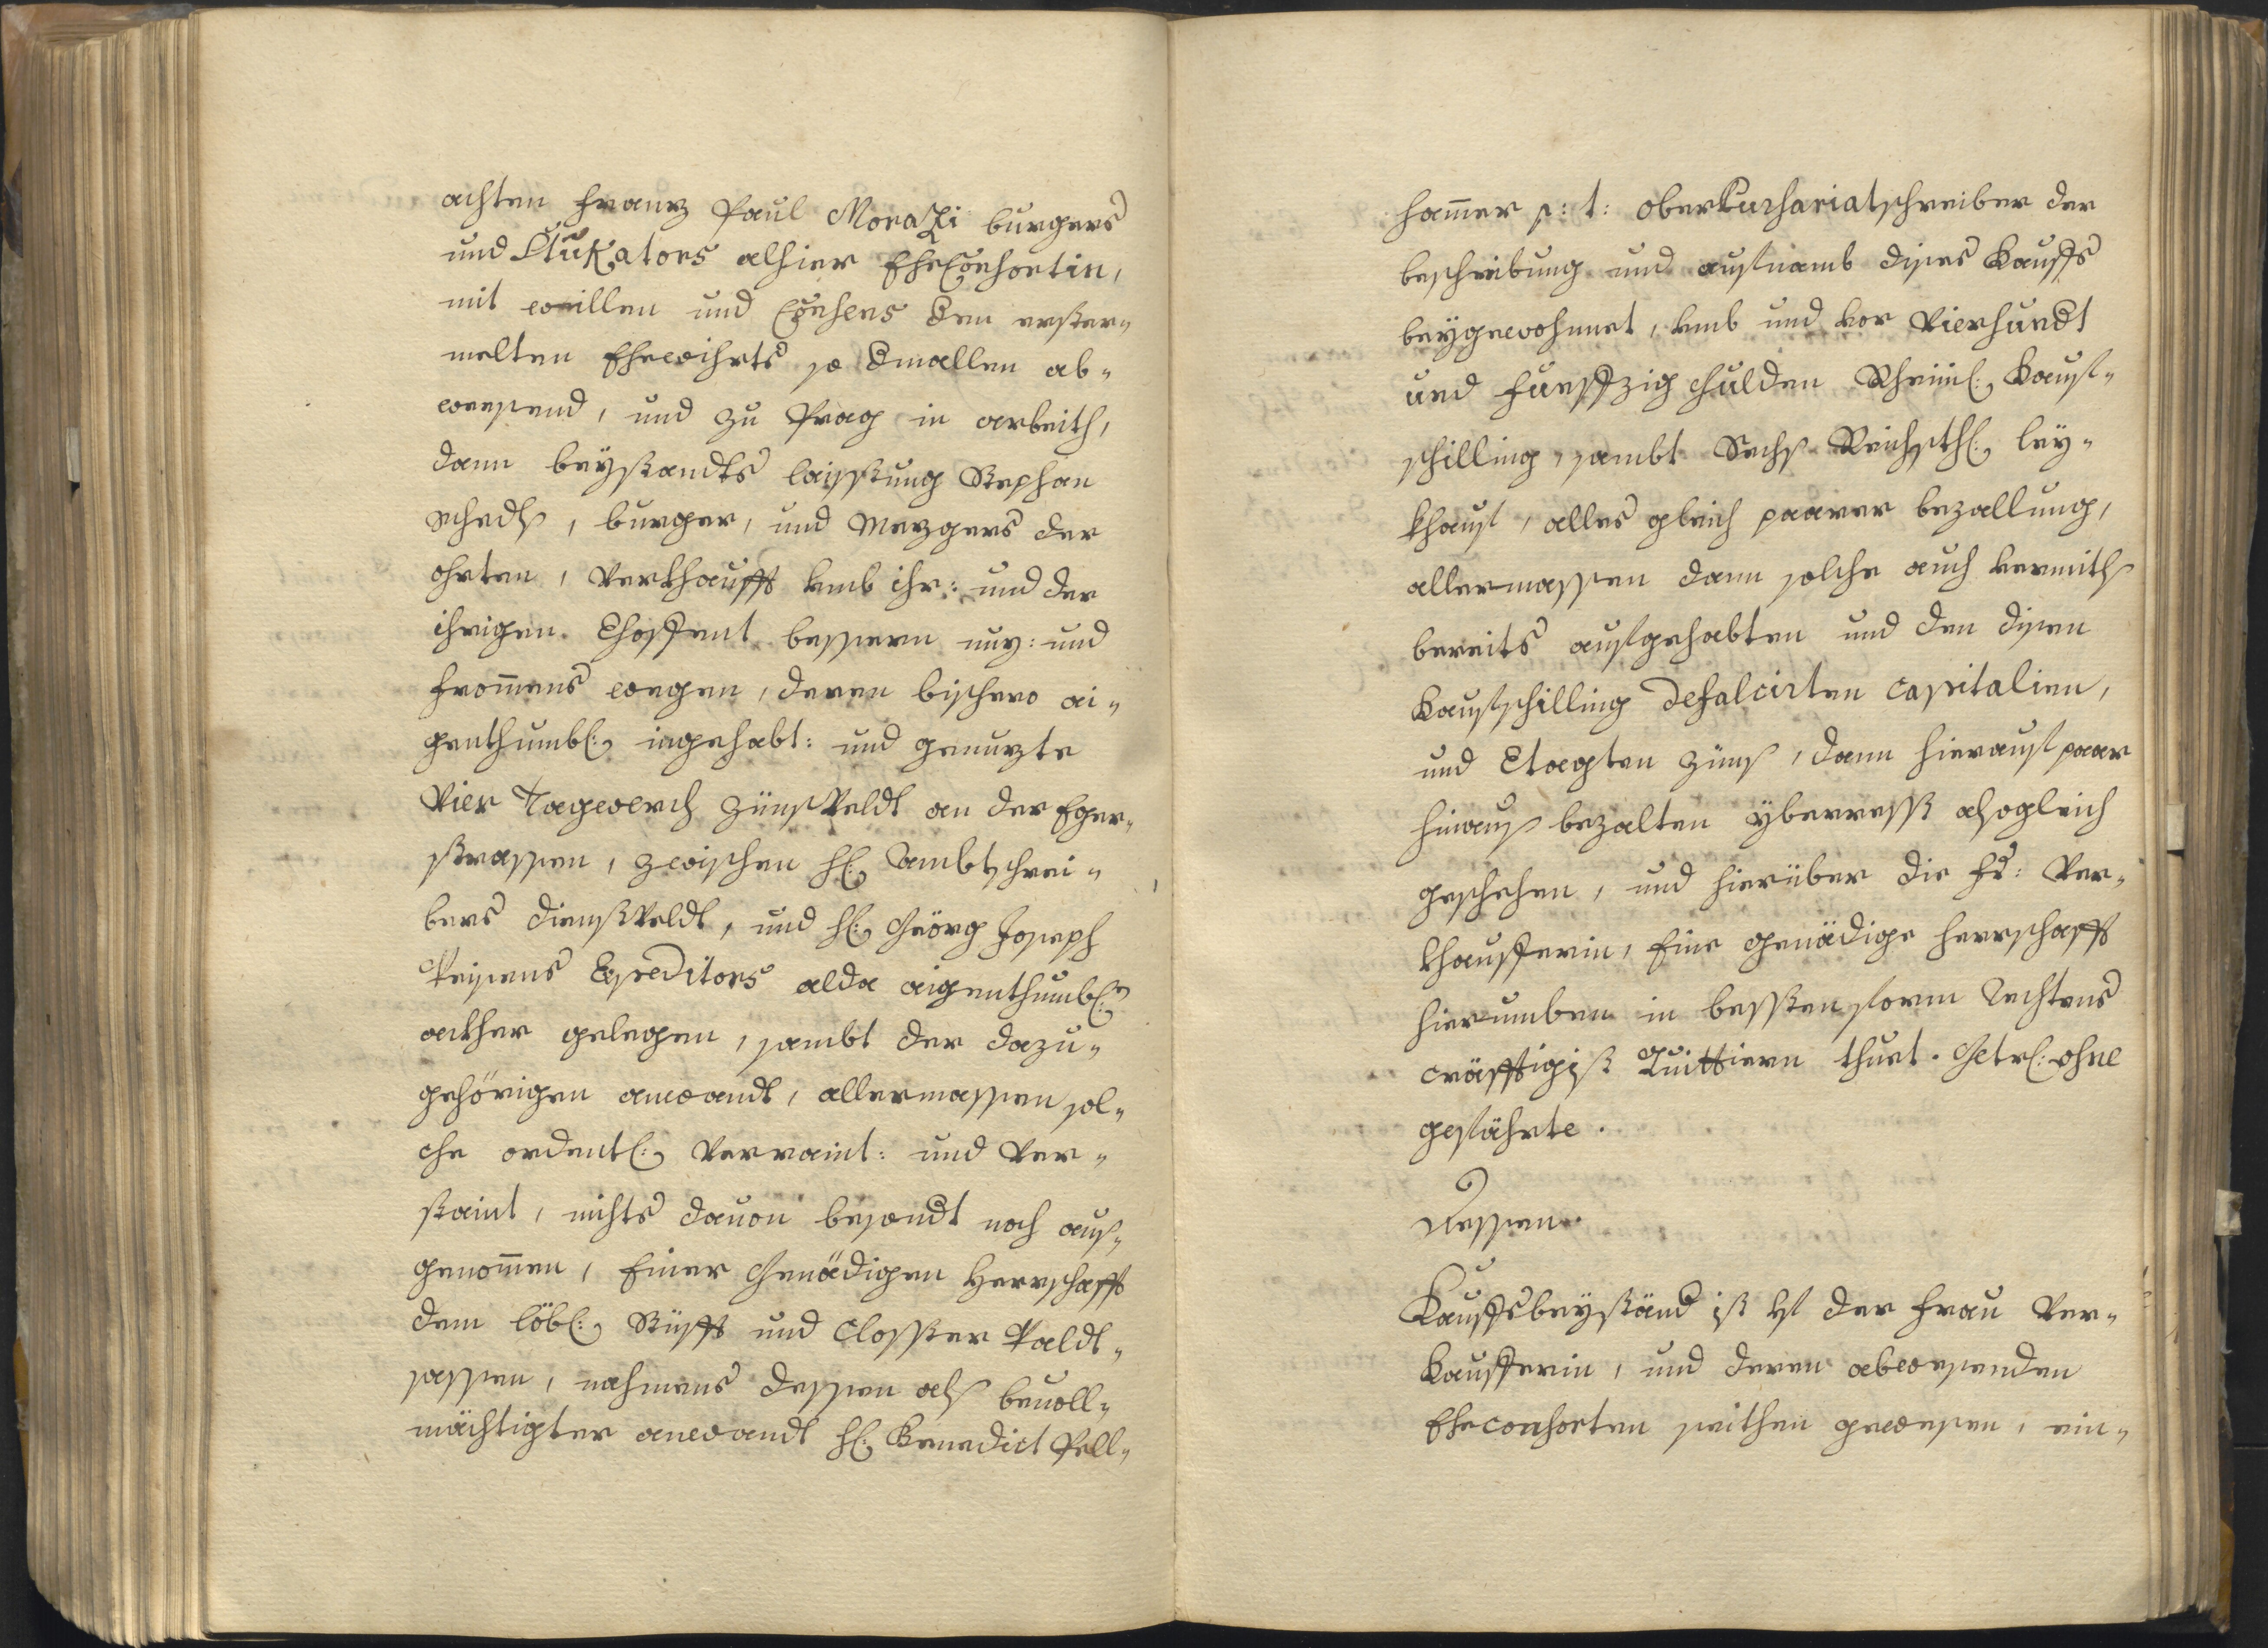 achten Franz Paul Morazi burgers
und Stukators alhier EheConsortin,
mit willen und Consens den erster„
melten Ehewihrts so dmallen ab„
wesend, und zu Prag in arbeith,
dann beystandts laisstung Stephan
Schedls, burger, und Mezgers der
ohrten, Verkhaufft umb ihr: und der
ihrigen Choffent bessern nuz: und
frommens wegen, deren bishero ai„
genthumbl: ingehabt: und genuzte
Vier Tagwerch ZünsVeldt an der Eger„
strassen, zwischen H: Ambtschrei„
bers dienstVeldt, und H: Georg Joseph
Expeditors alda aigenthumbl:
ackher gelegen, sambt der dazu„
gehörigen anwandt, allermassen sol„
che ordentl: Verraint: und Ver„
staint, nichts dauon besondt noch aus„
genommen, Einer Genädigen Herrschafft
dem löbl: Stüfft und Closster Waldt„
sassen, nahmens dessen als beuoll„
mächtigter anwandt H: Benedict Pell„
hammer p: t: ober schreiber der
beschreibung und ausnamb dises Kauffs
beygewohnnet, umb und vor Vierhundt
und Funffzig Gulden Rheinl: Kauf„
schilling, sambt Sechs Reichsthl: ley„
khauf, alles gleich paarer bezallung,
allermassen dann solche auch vermitls
bereits aufgehabten und den disen
Kaufschilling defalcirten Capitalien,
und Etagten Züns, dann hierauf paar
hinaus bezalten yberresst alsogleich
geschehen, und hierüber die Fr: Ver„
khaufferin, Eine genädige Herrschafft
hierumben in bessten form Rechtens
cräfftigist Quittiern thuet. Getrl: ohne
gefährte.
Dessen.
Kauffsbeyständ ist uf der Frau Ver„
Kaufferin, und deren abwesenden
Eheconsorten seithen gewesen, ein„